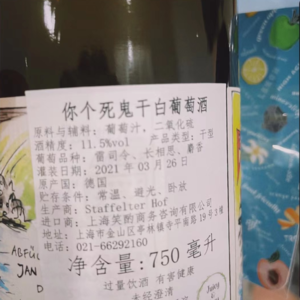 你个死鬼干白葡萄酒
原料与辅料：葡萄汁、二氧化硫
酒精度：11.5%vol 产品类型：干型
葡萄品种：雷司令、长相思、麝香
灌装日期：2021 年 03 月 26 日
原产国：德国
贮存条件：常温、避光、卧放
生产商：Staffelter Hof
进口商：上海笑酌商务咨询有限公司
地址：上海市金山区亭林镇寺平南路19号3幢
电话：021-66292160
净含量:750 毫升
过量饮酒 有害健康
未经澄清
ABFÜ
JAN
D
Juicy